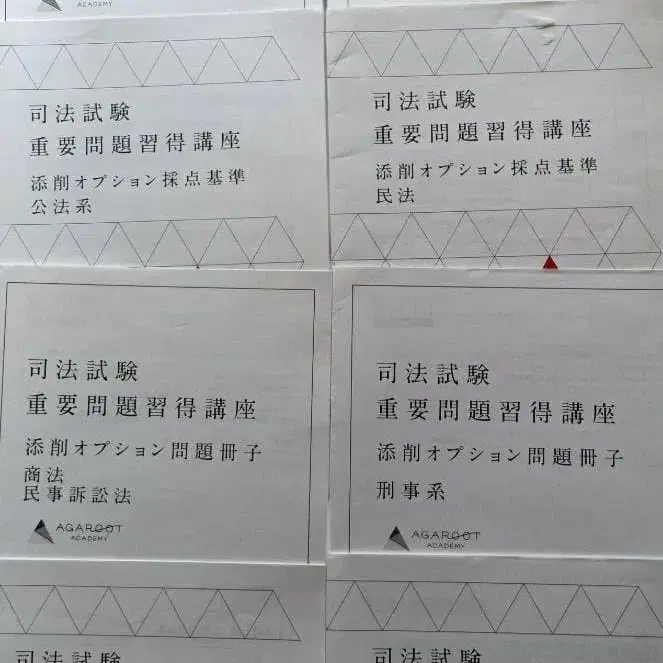 ACADEMY
司法試験
重要問題習得講座
添削オプション採点基準
公法系
司法試験
重要問題習得講座
添削オプション採点基準
民法
司法試験
重要問題習得講座
添削オプション問題冊子
商法
民事訴訟法
AGAROOT
ACADEMY
司法試験
重要問題習得講座
添削オプション問題冊子
刑事系
AGAROOT
ACADEMY
司法試験
司法試験